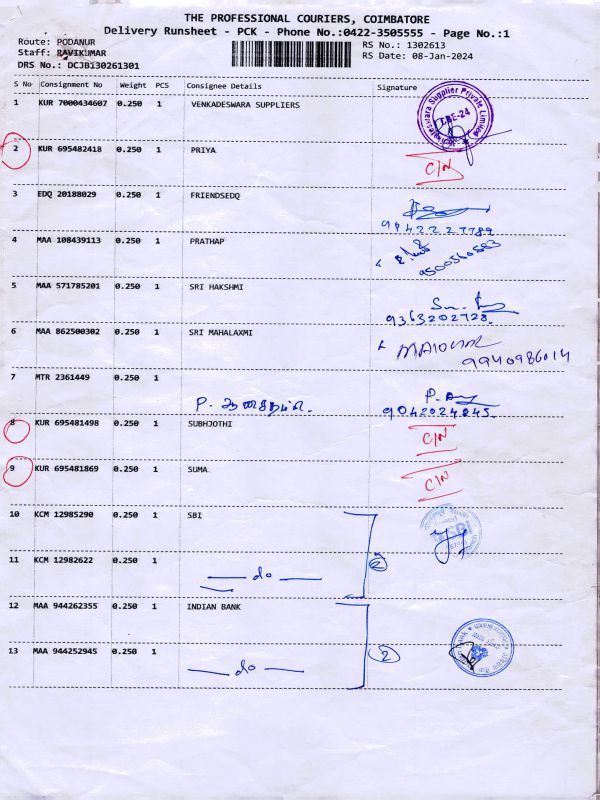 THE PROFESSIONAL COURIERS, COIMBATORE
Delivery Runsheet - PCK - Phone No.:0422-3505555 - Page No.:1
Route: PODANUR RS No.: 1302613
Staff: RAVIKUMAR RS Date: 08-Jan-2024
DRS No.: DCJB130261301
S No Consignment No Weight PCS Consignee Details Signature
1 KUR 7000434607 0.250 1 VENKADESWARA SUPPLIERS
CBE-24
2 KUR 695482418 0.250 1 PRIYA C/N
3 EDQ 20188029 0.250 1 FRIENDSEDQ
9442227789
4 MAA 108439113 0.250 1 PRATHAP
9500560583
5 MAA 571785201 0.250 1 SRI HAKSHMI
9363202728.
6 MAA 862500302 0.250 1 SRI MAHALAXMI
9940986014
7 MTR 2361449 0.250 1
9042024845.
8 KUR 695481498 0.250 1 SUBHJOTHI C/N
9 KUR 695481869 0.250 1 SUMA C/N
10 KCM 12985290 0.250 1 SBI
SBI
11 KCM 12982622 0.250 1
do 2
12 MAA 944262355 0.250 1 INDIAN BANK
13 MAA 944252945 0.250 1 2
do